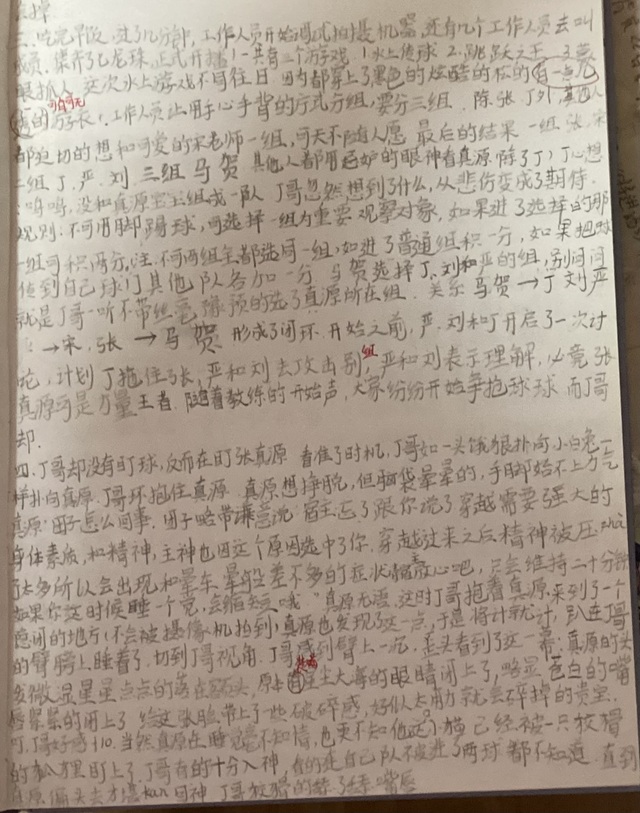 三.吃完早饭.过了几分钟,工作人员开始调试拍摄机器,还有几个工作人员去叫
成员.集齐了七龙珠,正式开播!一共有三个游戏 1水上传球 2.跳跃之王 3.蒙
眼抓人 这次水上游戏不同往日 因为都穿上了黑色的炫酷的
的分子衣!工作人员让用手心手背的方式分组,要分三组.陈张丁外,其他人
都迫切的想和可爱的宋老师一组,可天不随人愿 最后的结果 一组 张,宋
二组丁.严.刘 三组 马贺.其他人都用嫉妒的眼神看真源(除了丁)丁心想
:呜呜,没和真源宝宝组成一队 丁哥忽然想到了什么,从悲伤变成了期待.
规则:不可用脚踢球,可选择一组为重要观察对象,如果进了选择的那
一组可积两分,注:不可两组全都选同一组,如进了普通组积一分,如果把球
传到自己球门其他队各加一分 马贺选择丁、刘和严的组,别问问
就是丁哥一听不带丝毫 犹预的选了真源所在组.关系 马贺→丁刘严
→宋,张→马贺 形成了闭环.开始之前,严.刘和丁开启了一次讨
论,计划丁拖住张,严和刘去攻击别组,严和刘表示理解,必竟张
真源可是力量王者.随着教练的开始声,大家纷纷开始争抢球球 而丁哥
却.
四.丁哥却没有盯球,反而在盯张真原 看准了时机,丁哥如一头饿狼扑向小白兔一
样扑向真原.丁哥环抱住真源 真原想挣脱,但脑袋晕晕的,手脚始不上力气
真原:团子怎么回事.团子略带嫌意说:宿主忘了跟你说了穿越需要强大的
身体素质,和精神,主神也因这个原因选中了你.穿越过来之后精神被压zhà
太多所以会出现和晕车.晕船差不多的症状请放心吧,只会维持二十分钟
如果你这时候睡一个觉,会缩短哦"真原无语.这时丁哥抱着真原来到了一个
隐闭的地方(不会被摄像机拍到)真源也发现了这一点,于是将计就计,趴在丁哥
的臂膀上睡着了.切到丁哥视角.丁哥感到臂上一沉.歪头看到了这一幕:真原的头
发微湿星星点点的落在额头,原本大的眼睛闭上了,略显苍白的嘴
唇紧紧的闭上了 给这张脸带上了一些破碎感,好似太用力就会碎掉的贵宝.
叮,丁哥好感+10.当然真原在睡觉不知情,也更不知他这只小猫已经被一只狡猾
的狐狸盯上了.丁哥看的十分入神,自己队不被进了两球都不知道.直到
真原偏头去才堪kān回神 丁哥狡猾的舔了舔嘴唇